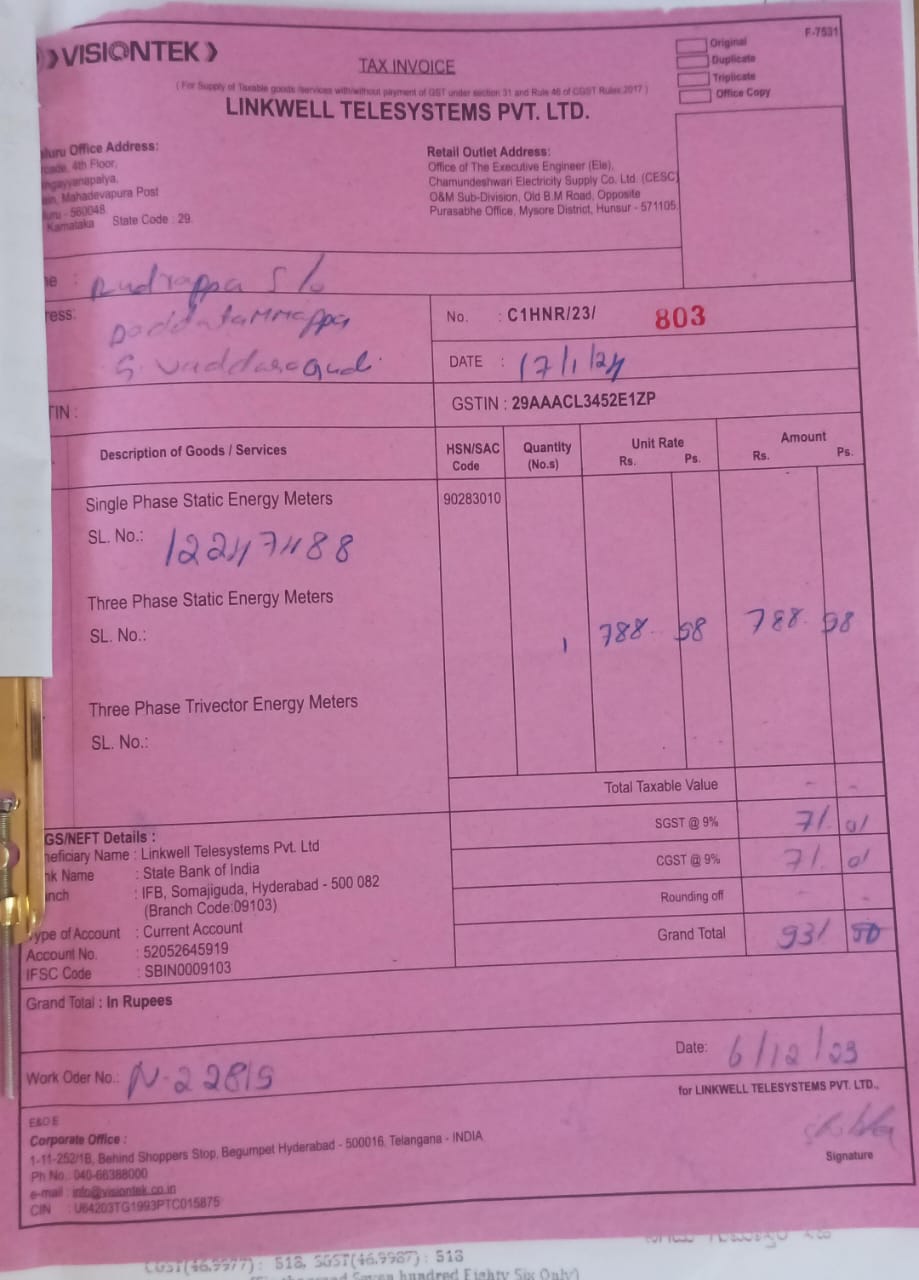 VISIONTEK
F-7531
Original
Duplicate
Triplicate
Office Copy
TAX INVOICE
( For Supply of Taxable goods /services with/without payment of GST under section 31 and Rule 46 of CGST Rules 2017 )
LINKWELL TELESYSTEMS PVT. LTD.
Office Address:
4th Floor,
Mahadevapura Post
- 560048.
Karnataka State Code : 29
Retail Outlet Address:
Office of The Executive Engineer (Ele),
Chamundeshwari Electricity Supply Co. Ltd. (CESC)
O&M Sub-Division, Old B.M Road, Opposite
Purasabhe Office, Mysore District, Hunsur - 571105.
Rudrappa S/o
No. : C1HNR/23/ 803
DATE : 17/1/24
GSTIN : 29AAACL3452E1ZP
Description of Goods / Services HSN/SAC Code Quantity (No.s) Unit Rate Rs. Ps. Amount Rs. Ps.
Single Phase Static Energy Meters 90283010
SL. No.: 12247488
Three Phase Static Energy Meters
SL. No.:
1 788 98 788 98
Three Phase Trivector Energy Meters
SL. No.:
Total Taxable Value - -
SGST @ 9% 71. 01
CGST @ 9% 71. 01
Rounding off - -
Grand Total 931
Details :
Name : Linkwell Telesystems Pvt. Ltd
Name : State Bank of India
: IFB, Somajiguda, Hyderabad - 500 082
(Branch Code:09103)
Type of Account : Current Account
Account No. : 52052645919
IFSC Code : SBIN0009103
Grand Total : In Rupees
Work Oder No.: N-22815
Date: 6/12/23
for LINKWELL TELESYSTEMS PVT. LTD.,
E&O E
Corporate Office :
1-11-252/1B, Behind Shoppers Stop, Begumpet Hyderabad - 500016. Telangana - INDIA
Ph No. : 040-66388000
e-mail : info@visiontek.co.in
CIN : U64203TG1993PTC015875
Signature
518, 518
Seven hundred Eighty Six Only)